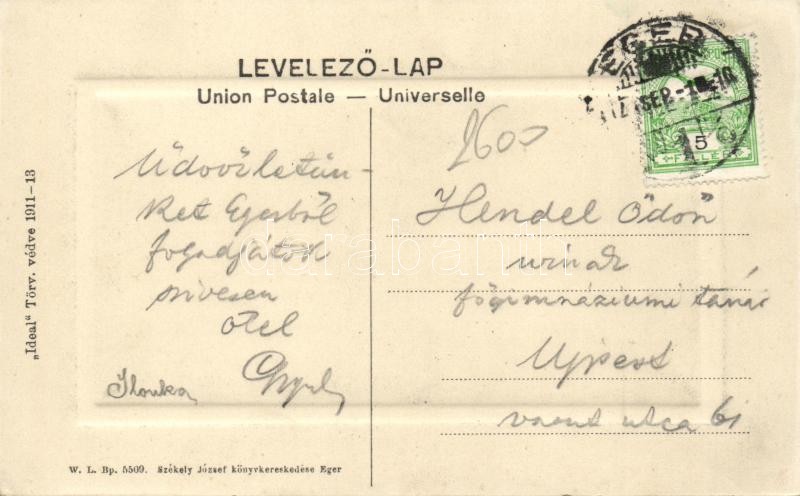 LEVELEZŐ-LAP
Union Postale — Universelle
EGER
5
2600
Üdvözletün-
ket Egerből
fogadjátok
szivesen
ölel
Ilonka
Hendel Ödön
urnak
főgimnáziumi tanár
Ujpest
utca 61
darabanth
„Ideal“ Törv. védve 1911–13
W. L. Bp. 5509. Székely József könyvkereskedése Eger